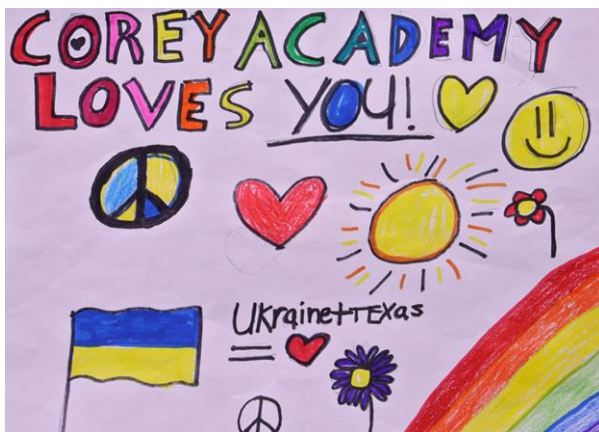 COREY ACADEMY
LOVES YOU!
UKrainE+TExas
=